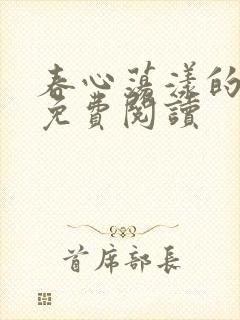 春心荡漾的
免費閱讀
首席部長